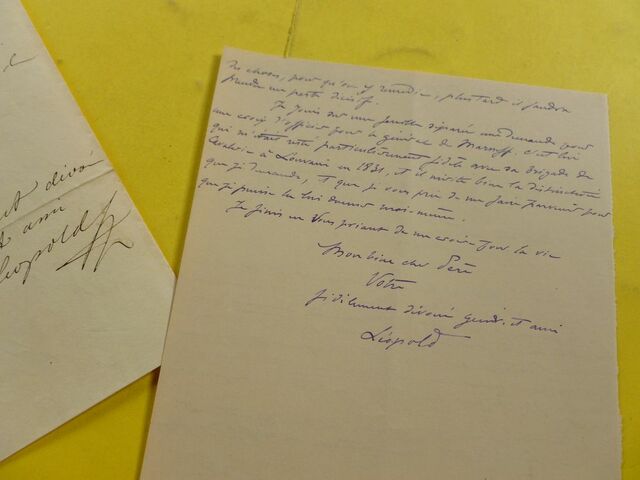 des choses, pour qu'on y remédie, plus tard il faudra
prendre un parti décisif.
Je joins sur une feuille séparée une demande pour
une croix d'officier pour le général de Marneff. c'est lui
qui m'était resté particulièrement fidèle avec sa brigade de
à Louvain en 1831, et il mérite bien la distinction
que je demande, et que je vous prie de me faire parvenir pour
que je puisse la lui donner moi-même.
Je finis en vous priant de me croire pour la vie
Mon bien cher Père
Votre
fidèlement dévoué gendre et ami
Léopold
dévoué
ami
Léopold